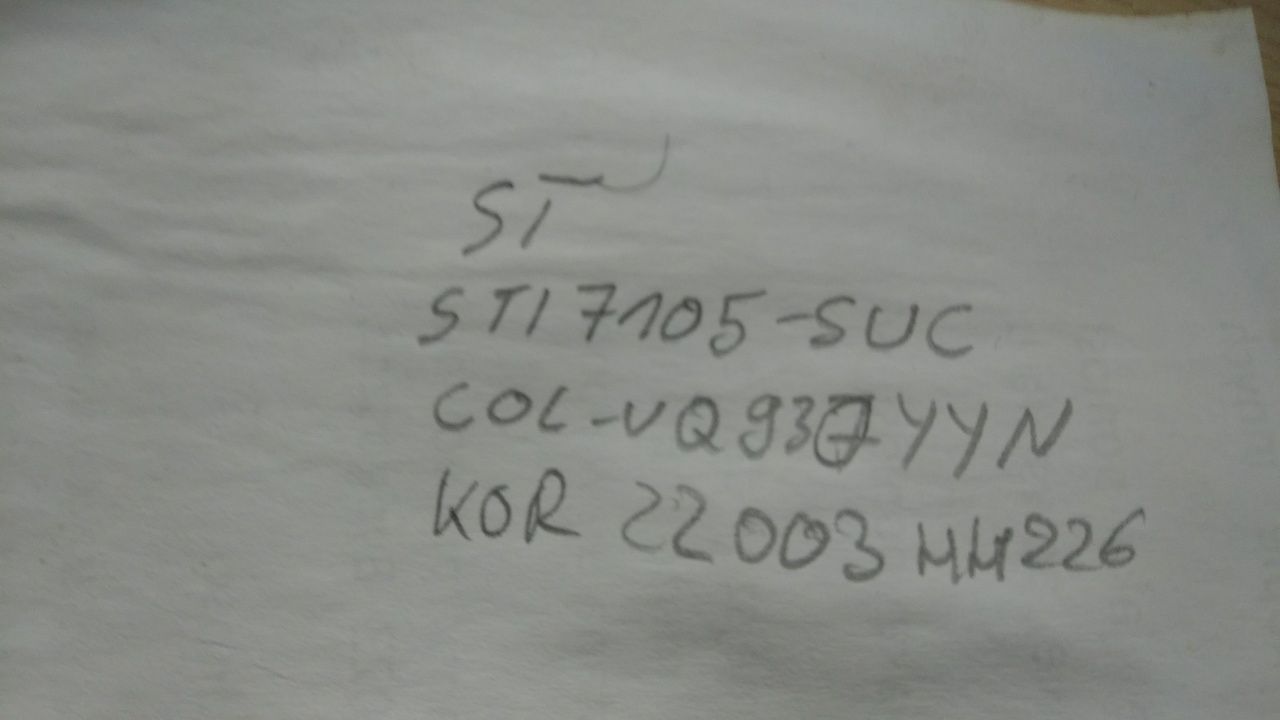 ST
STI7105-SUC
COL-VQ937YYN
KOR 22003 HH226